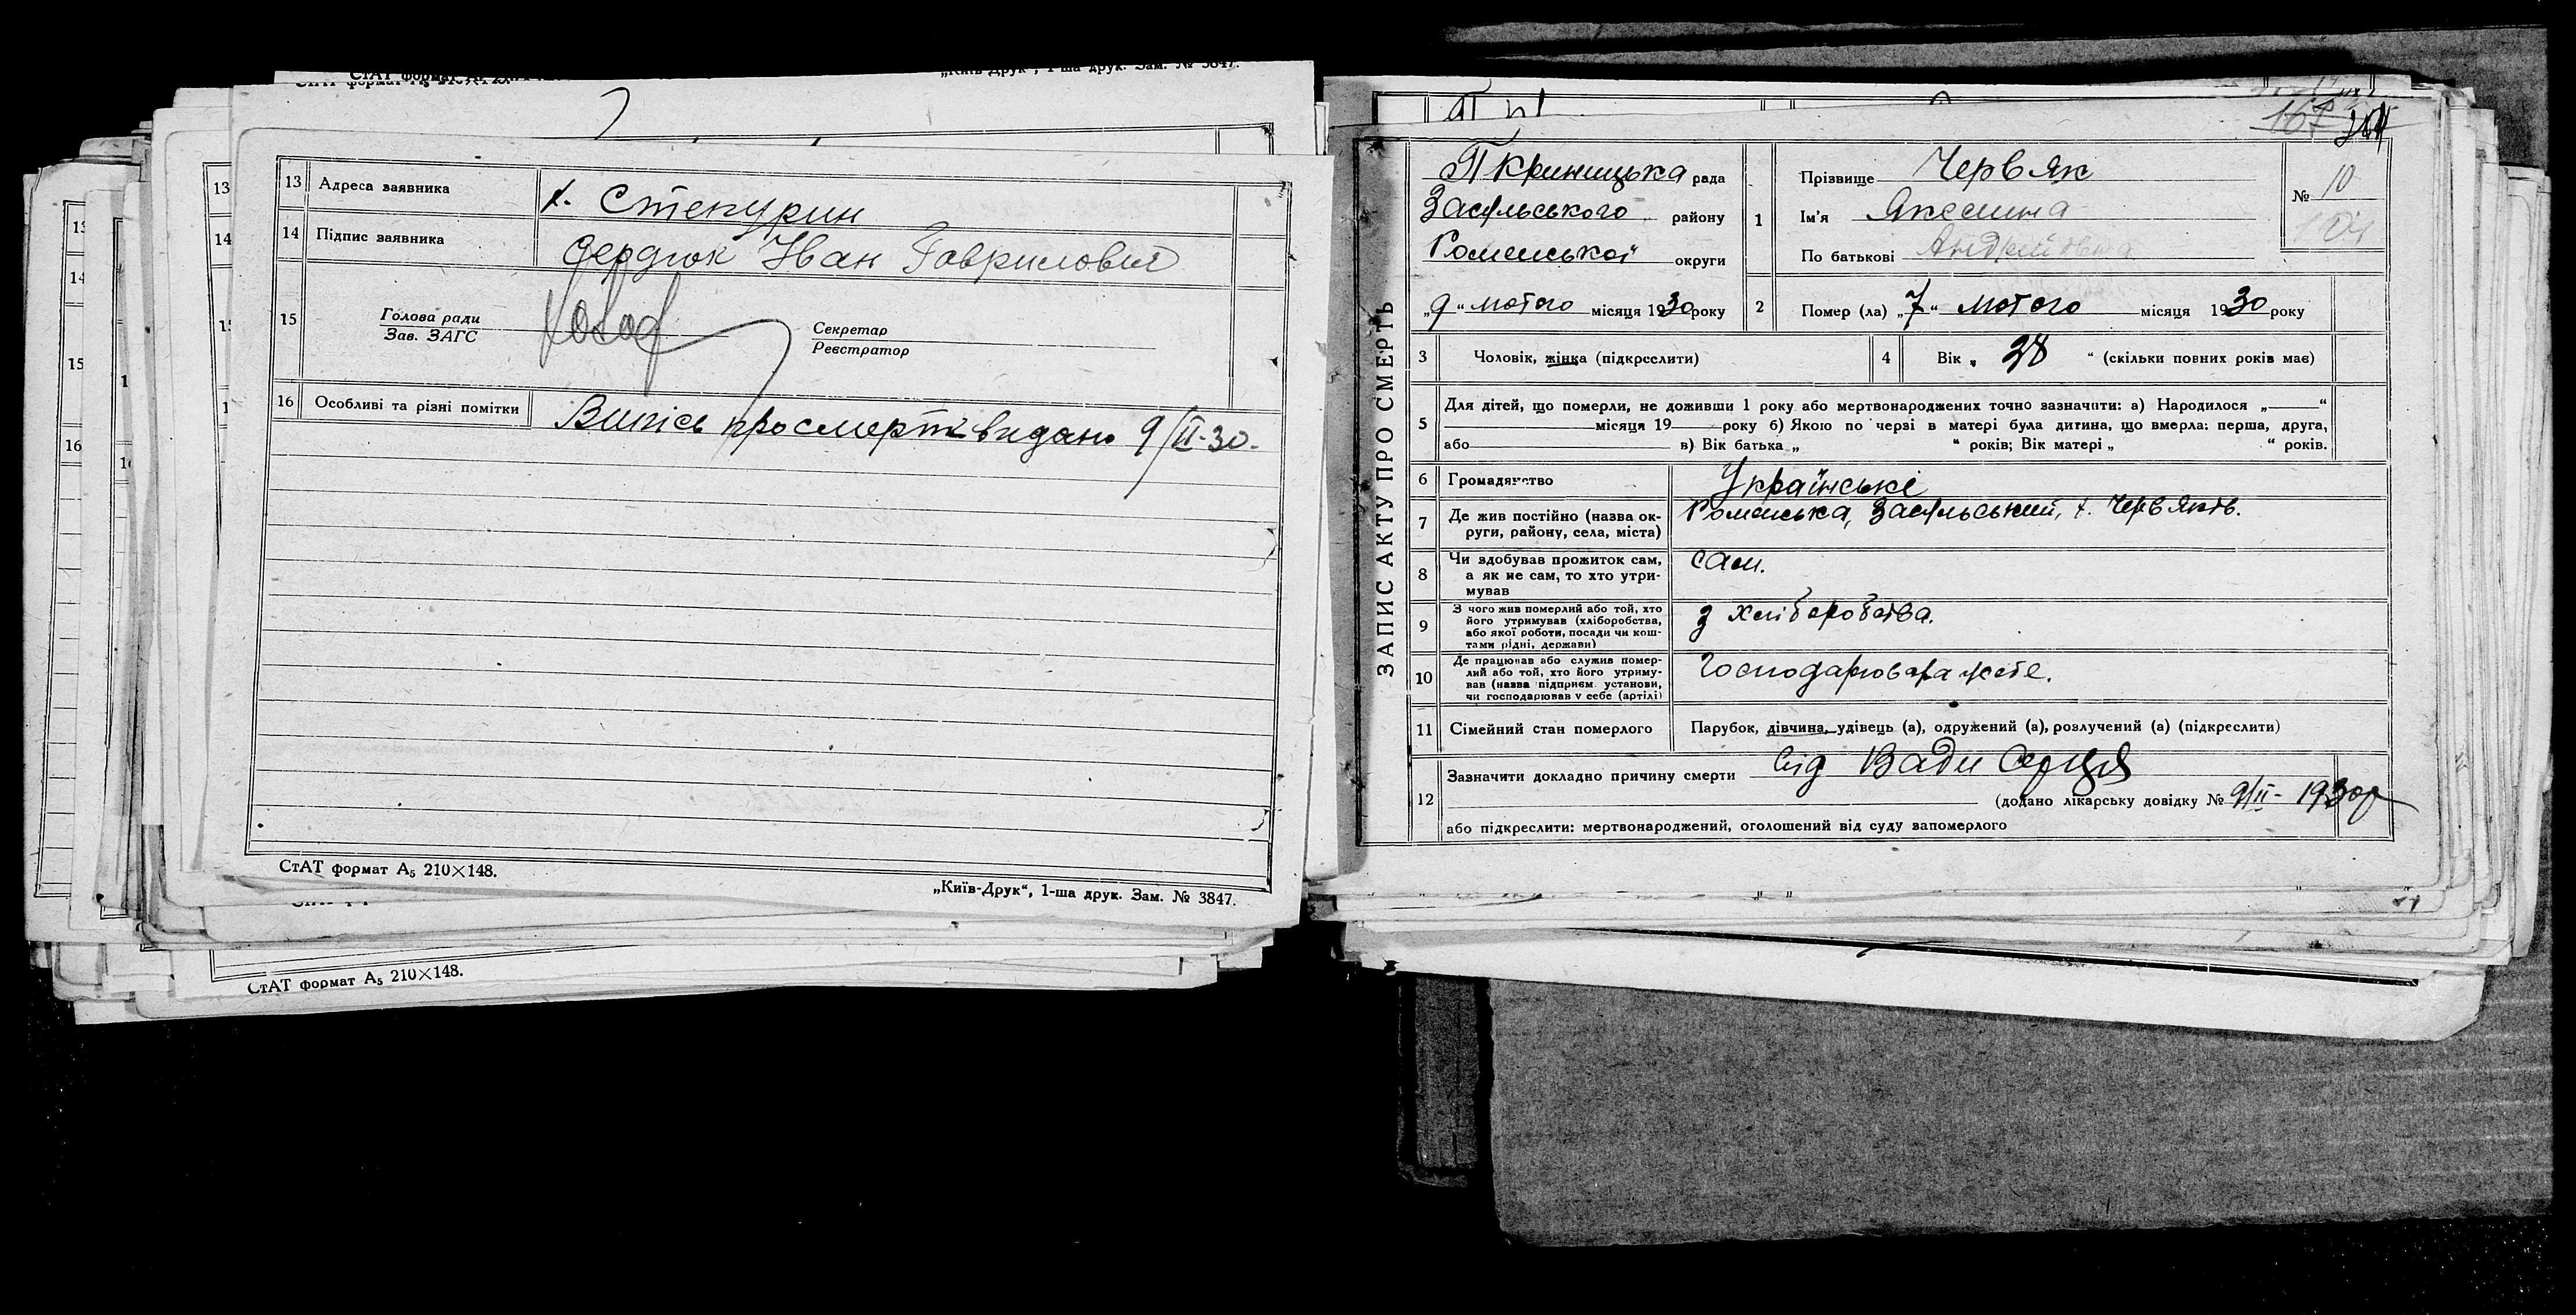 СтАТ формат А₅ 210×148.
„Київ-Друк“, 1-ша друк. Зам. № 3847.
13 Адреса заявника х. Стекурин
14 Підпис заявника Сердюк Іван Гаврилович
15 Голова ради
Зав. ЗАГС
Секретар
Реєстратор
16 Особливі та різні помітки Випісь про смерть видано 9/II-30.
СтАТ формат А₅ 210×148.
„Київ-Друк“, 1-ша друк. Зам. № 3847.
СтАТ формат А₅ 210×148.
167
204
ЗАПИС АКТУ ПРО СМЕРТЬ
П Криницька рада
Засульського району
Роменської округи
„9“ лютого місяця 1930 року
1 Прізвище Червяк
Ім'я Якелина
По батькові Андріївна
№ 10
104
2 Помер (ла) „7“ лютого місяця 1930 року
3 Чоловік, жінка (підкреслити)
4 Вік „ 38 “ (скільки повних років має)
5 Для дітей, що померли, не доживши 1 року або мертвонароджених точно зазначити: а) Народилося „ “
місяця 19 року б) Якою по черзі в матері була дитина, що вмерла: перша, друга,
або в) Вік батька „ “ років; Вік матері „ “ років.
6 Громадянство Українські
7 Де жив постійно (назва ок-
руги, району, села, міста) Роменська, Засульський, х. Червяків.
8 Чи здобував прожиток сам,
а як не сам, то хто утри-
мував сам.
9 З чого жив померлий або той, хто
його утримував (хліборобства,
або якої роботи, посади чи кош-
тами рідні, держави) з хліборобства.
10 Де працював або служив помер-
лий або той, хто його утриму-
вав (назва підприєм. установи,
чи господарював у себе (артілі) Господарювала
11 Сімейний стан померлого Парубок, дівчина, удівець (а), одружений (а), розлучений (а) (підкреслити)
12 Зазначити докладно причину смерти від Вади Серця
(додано лікарську довідку № 9/II- 1930р
або підкреслити: мертвонароджений, оголошений від суду запомерлого